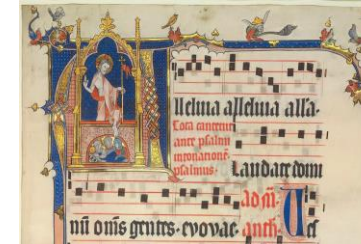 lleluia alleluia alla-
Tota cantetur
ante psalmi
intonationē
psalmus. Laudate domi
ad m̄.
nū om̄s gentes. evovae. anth.